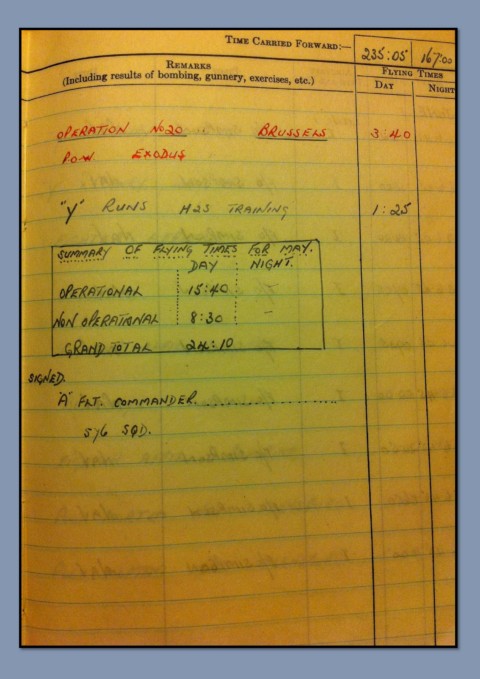 TIME CARRIED FORWARD:— 235:05 167:00
REMARKS
(Including results of bombing, gunnery, exercises, etc.)
FLYING TIMES
DAY NIGHT
OPERATION No20 BRUSSELS 3:40
P.O.W. EXODUS
"Y" RUNS H2S TRAINING 1:25
SUMMARY OF FLYING TIMES FOR MAY.
DAY NIGHT.
OPERATIONAL 15:40
NON OPERATIONAL 8:30 -
GRAND TOTAL 24:10
SIGNED.
"A" FLT. COMMANDER..............................
SQD.